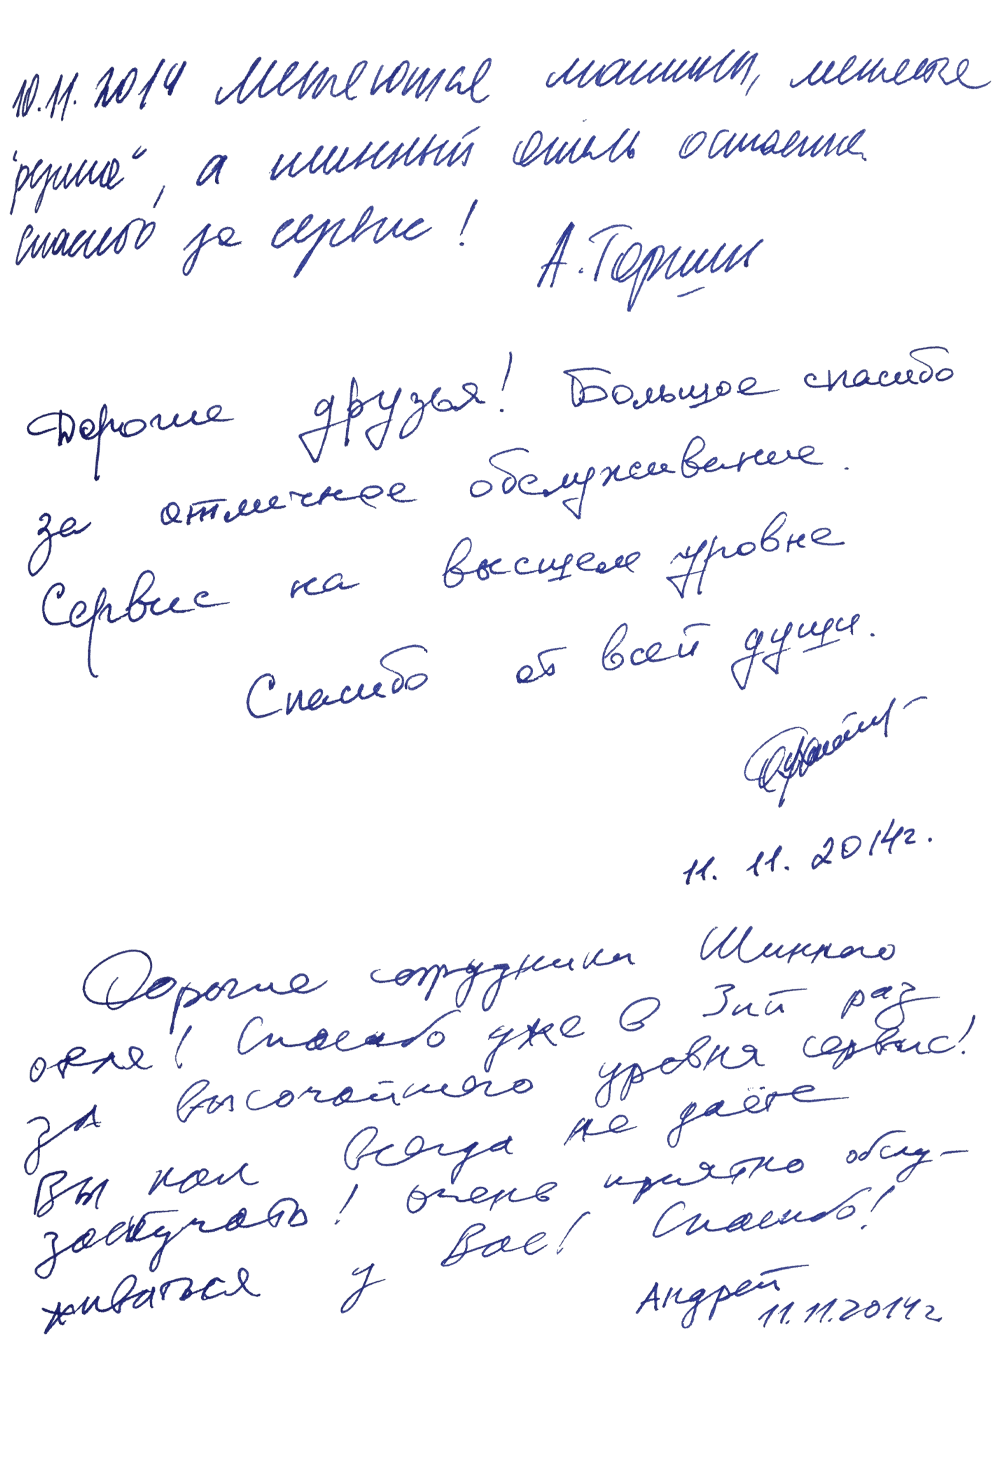 10.11.2014 Меняются машины, меняется
"резина", а шинный отель остается.
Спасибо за сервис!
А. Торшин
Дорогие друзья! Большое спасибо
за отличное обслуживание.
Сервис на высшем уровне
Спасибо от всей души.
11. 11. 2014г.
Дорогие сотрудники Шинного
отеля! Спасибо уже в 3ий раз
за высочайшего уровня сервис!
Вы нам всегда не даёте
заскучать! очень приятно обслу-
живаться у Вас! Спасибо!
Андрей
11.11.2014г